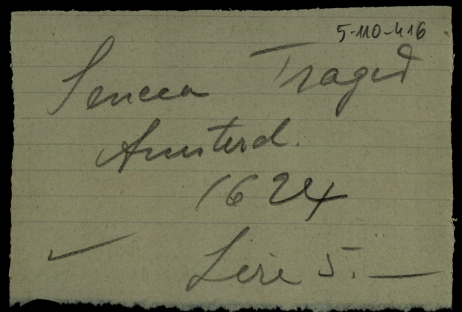 5-110-416
Seneca Traged
Amsterd.
1624
Lire 5.—